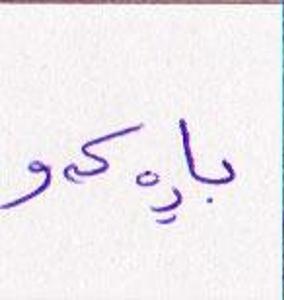 باڕە کەو